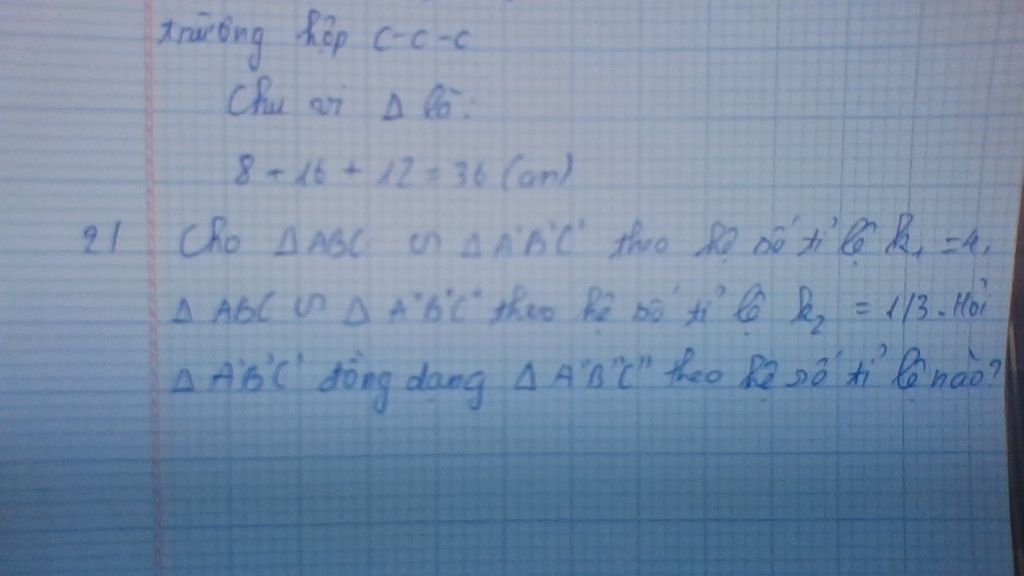 trường hợp c-c-c
Chu vi Δ là:
8 + 16 + 12 = 36 (cm)
2/ Cho Δ ABC ∽ Δ A'B'C' theo hệ số tỉ lệ k₁ = 4,
Δ ABC ∽ Δ A"B"C" theo hệ số tỉ lệ k₂ = 1/3. Hỏi
Δ A'B'C' đồng dạng Δ A"B"C" theo hệ số tỉ lệ nào?